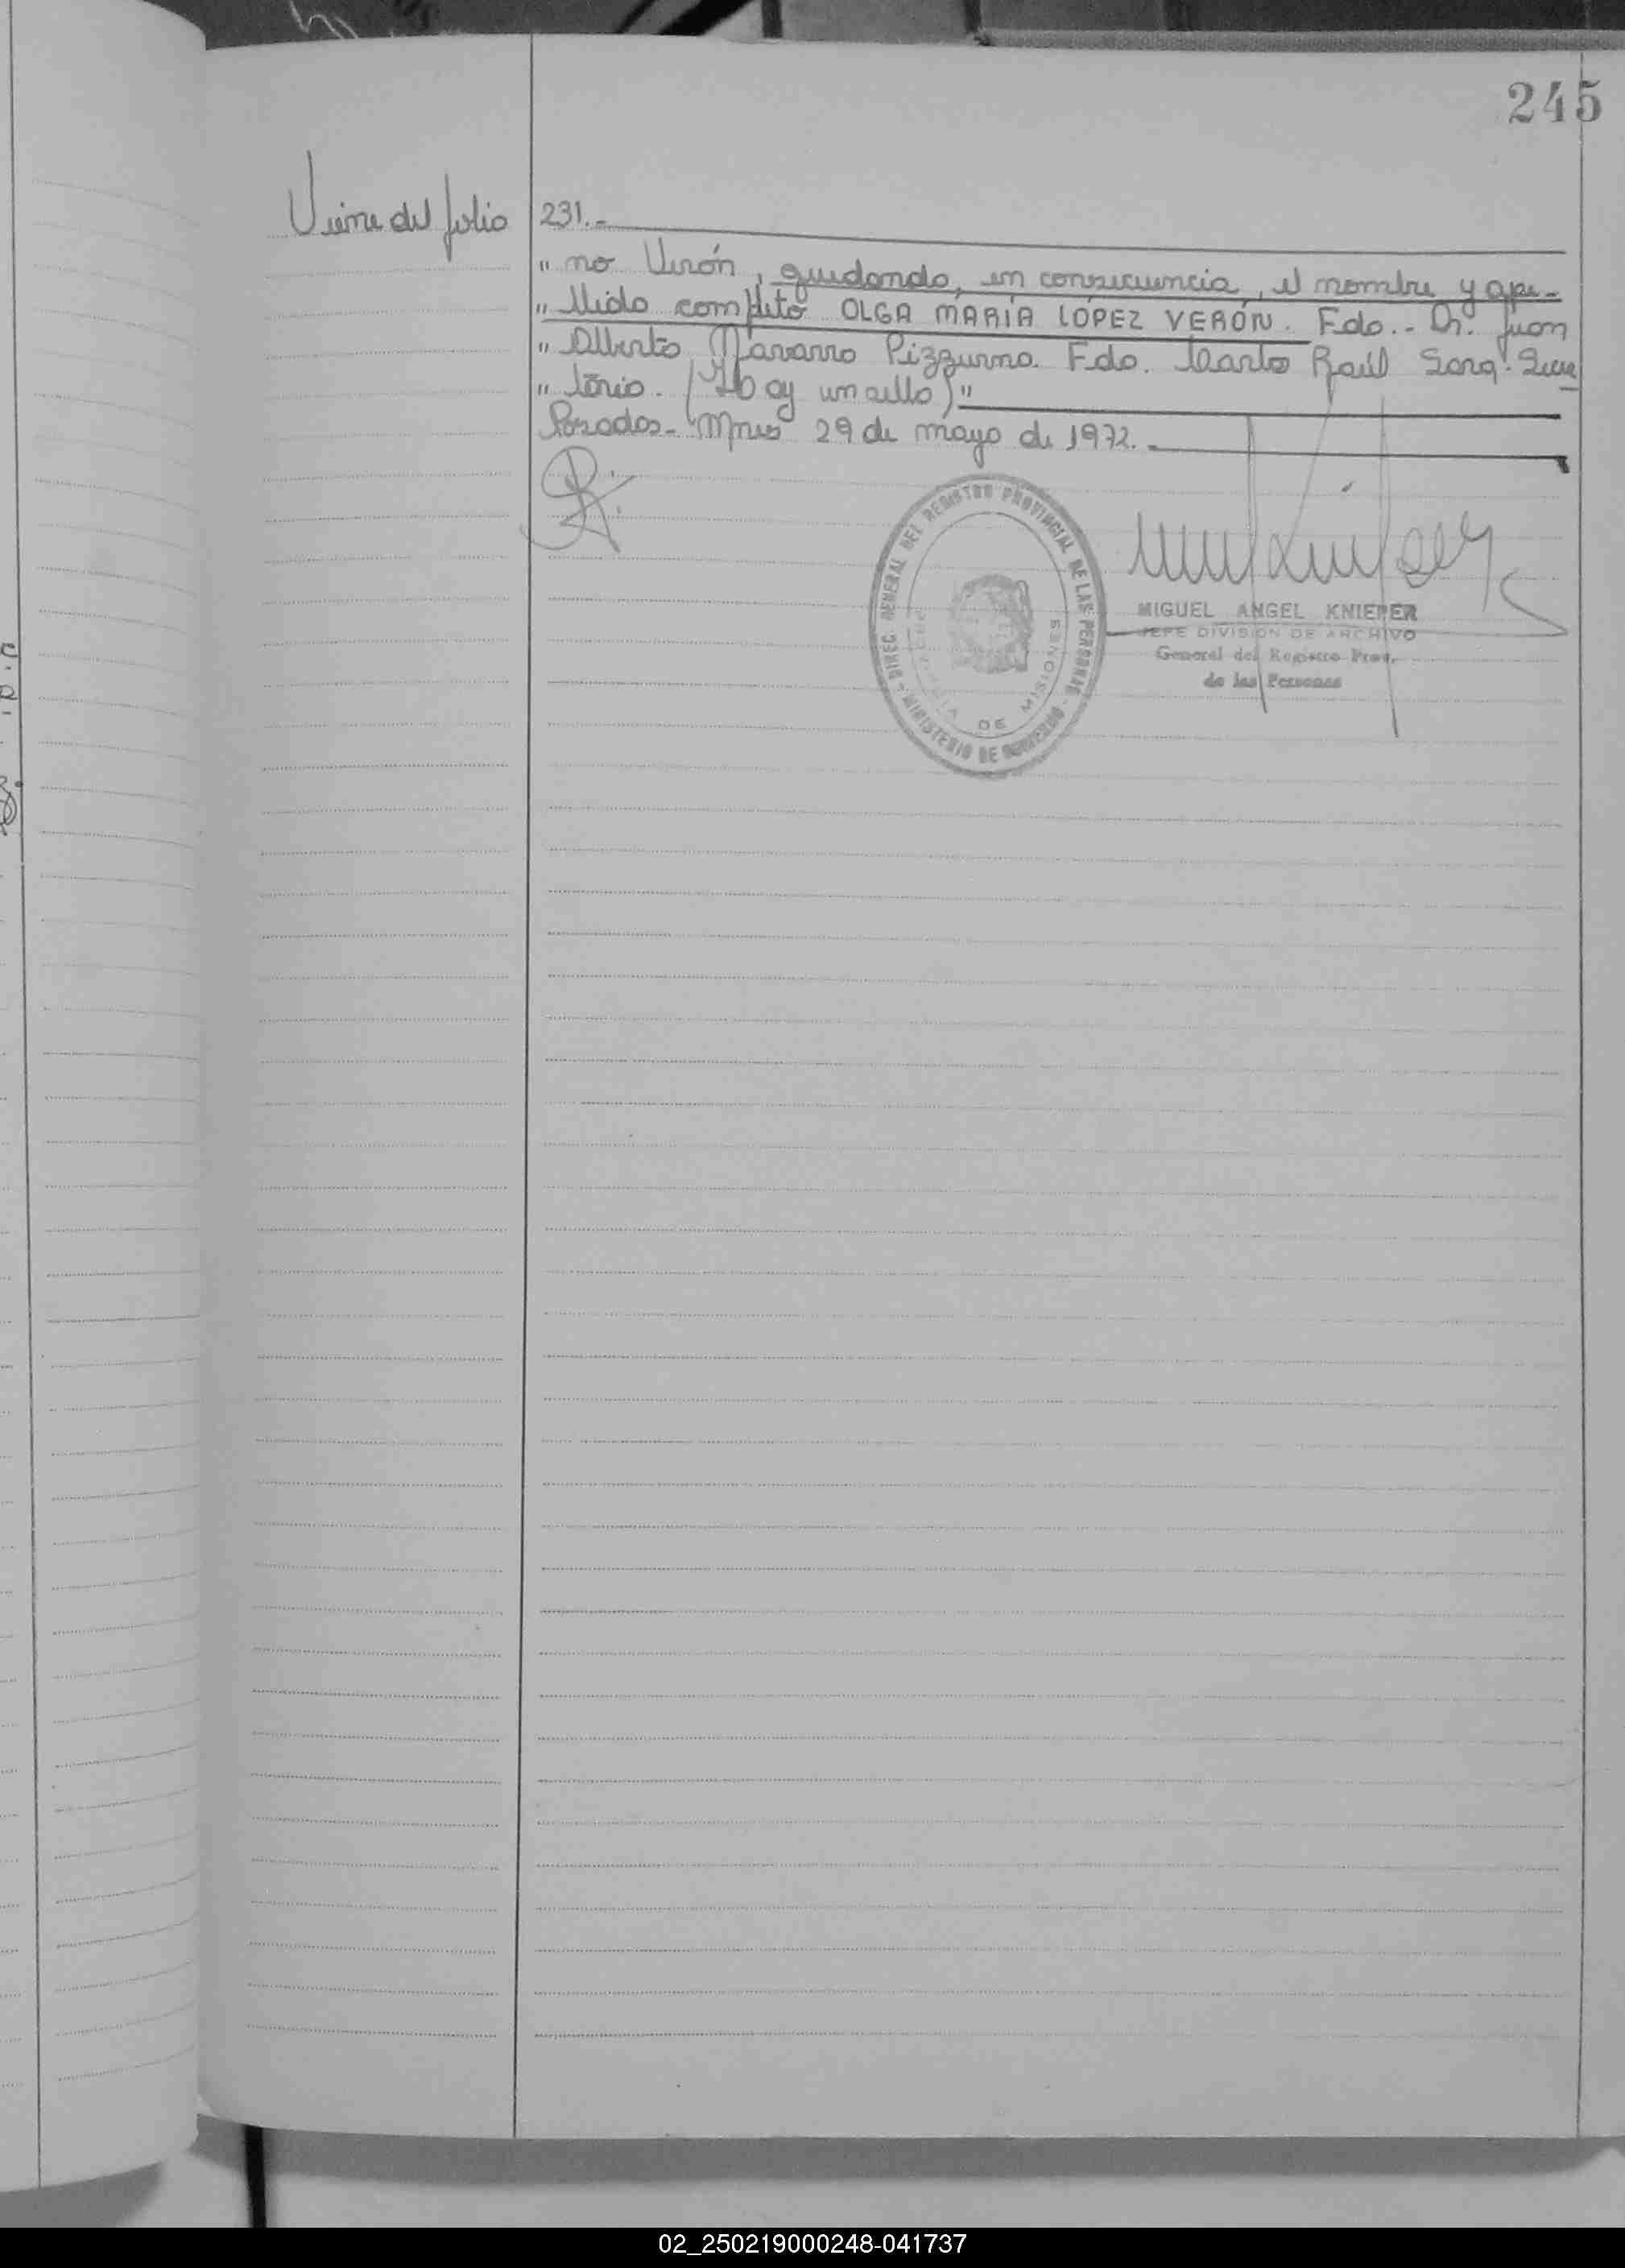 245
Viene del folio 231.-
" no Verón, quedando, en consecuencia, el nombre y ape-
" llido completo OLGA MARÍA LÓPEZ VERÓN. Fdo.- Dr. Juan
" Alberto Navarro Pizzurno. Fdo. Carlos Raúl Secre
" tário. (Hay un sello)"
Posadas- Mnes 29 de mayo de 1972.-
DIREC. GENERAL DEL REGISTRO PROVINCIAL DE LAS PERSONAS - MINISTERIO DE GOBIERNO
PROVINCIA DE MISIONES
MIGUEL ANGEL KNIEPER
JEFE DIVISION DE ARCHIVO
General del Registro Prov.
de las Personas
02_250219000248-041737